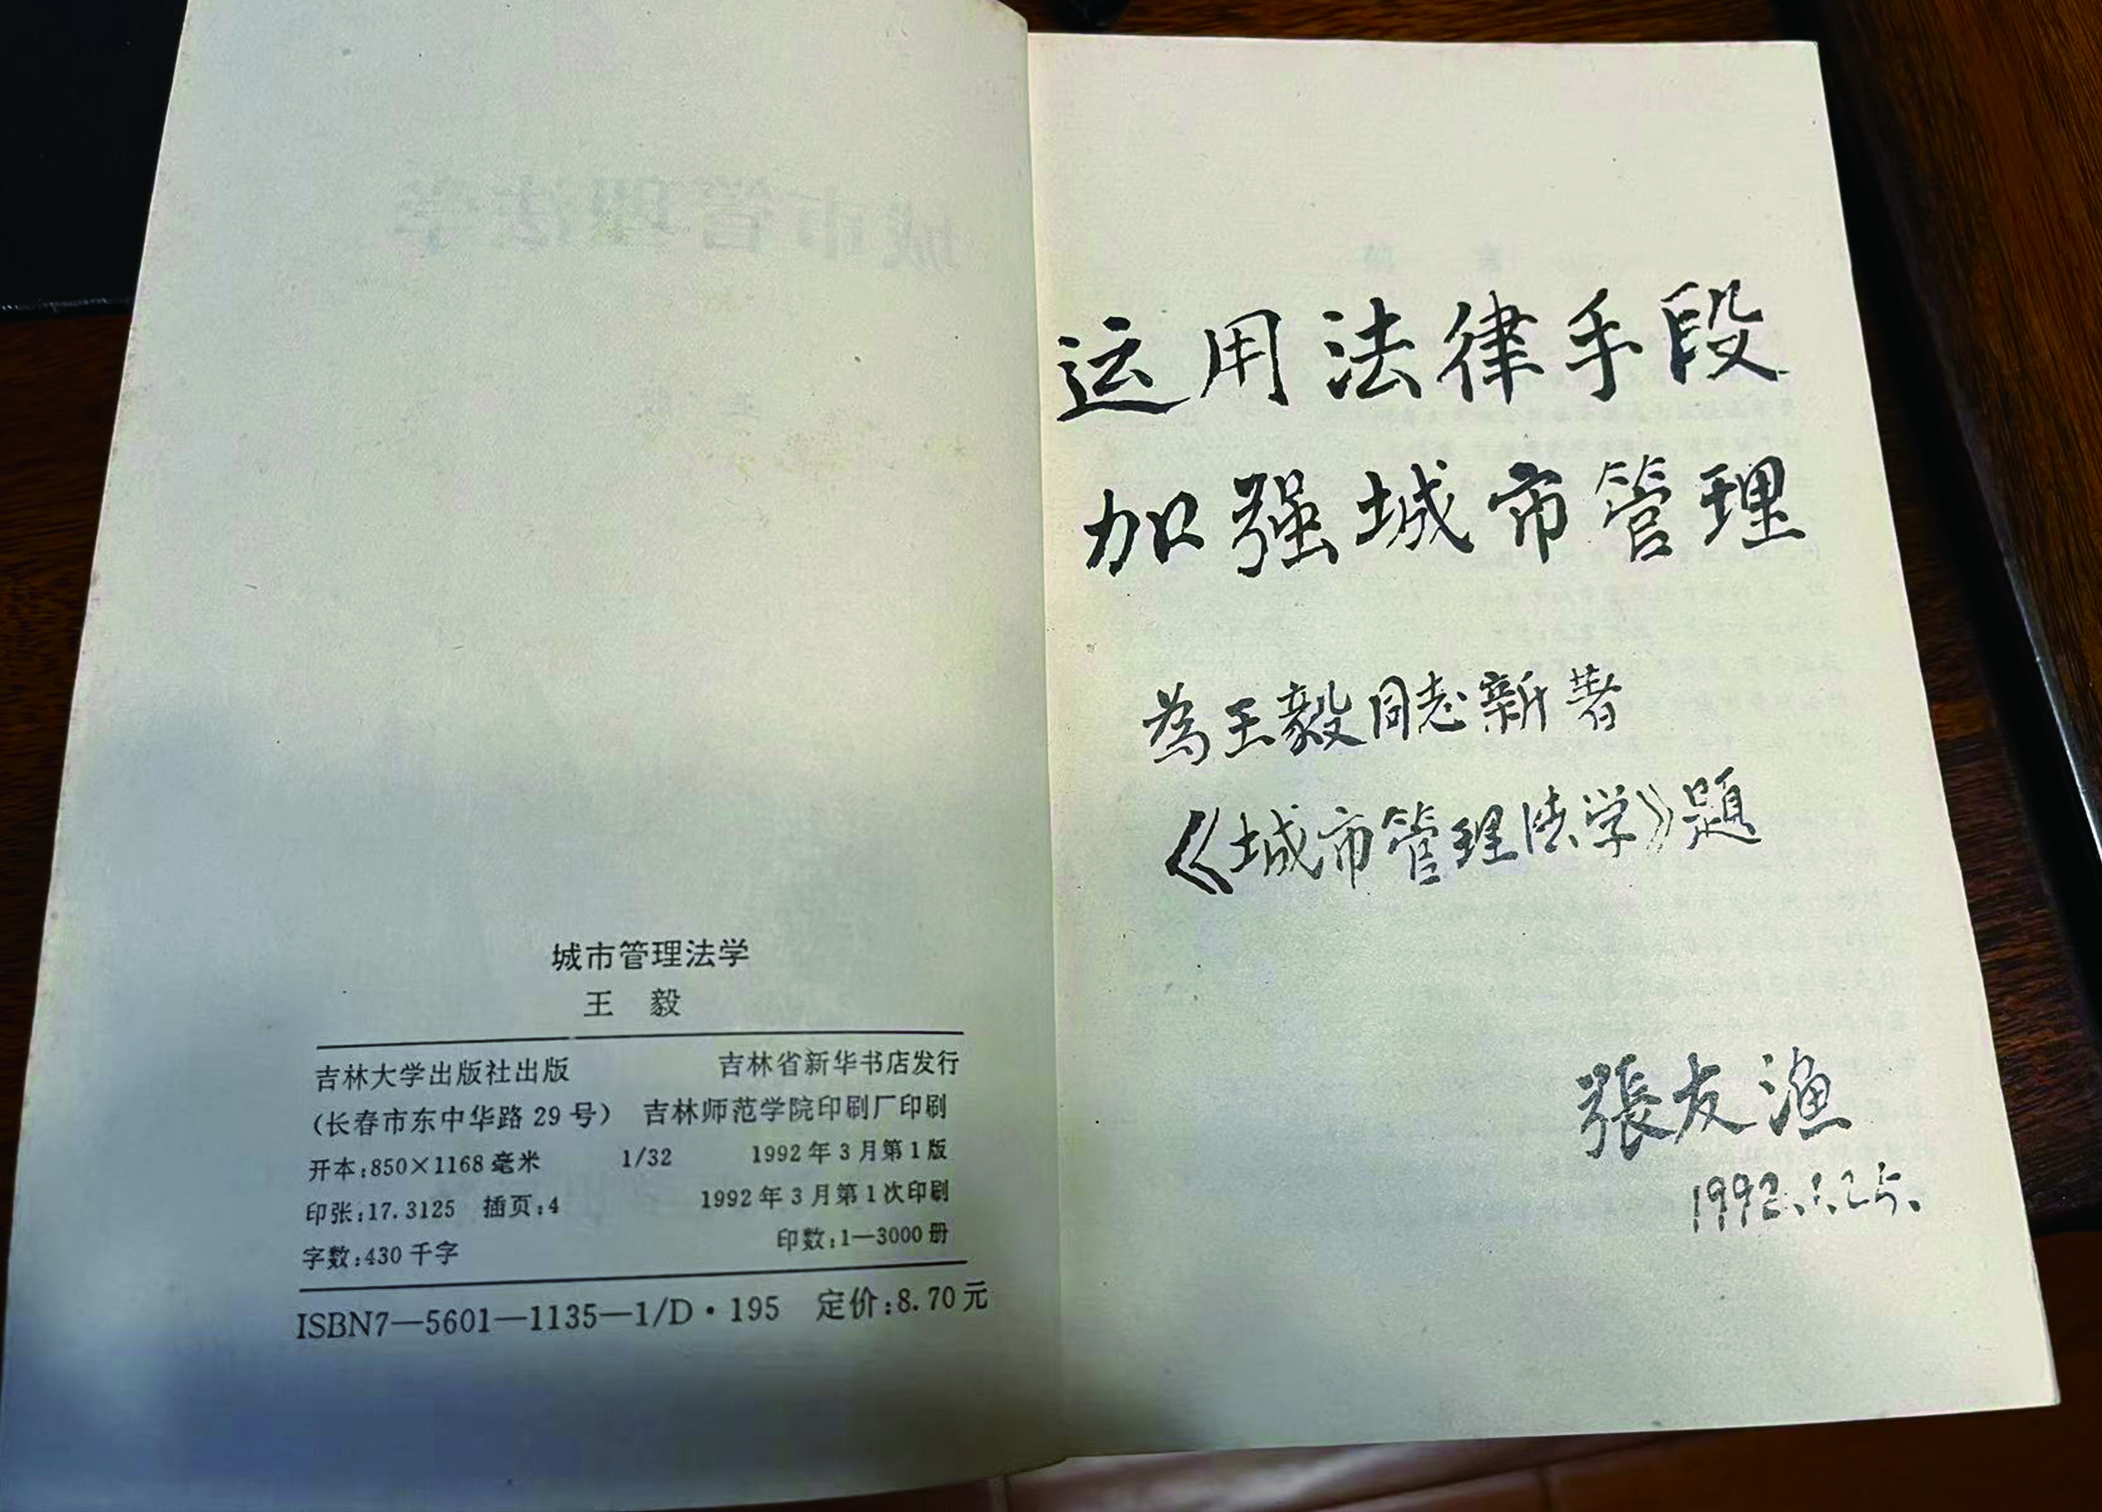 城市管理法学
王 毅
吉林大学出版社出版 吉林省新华书店发行
(长春市东中华路 29 号) 吉林师范学院印刷厂印刷
开本:850×1168 毫米 1/32 1992 年 3 月第 1 版
印张:17.3125 插页:4 1992 年 3 月第 1 次印刷
字数:430 千字 印数:1—3000 册
ISBN7—5601—1135—1/D·195 定价:8.70元
运用法律手段
加强城市管理
為王毅同志新著
《城市管理法学》題
張友漁
1992.1.25.